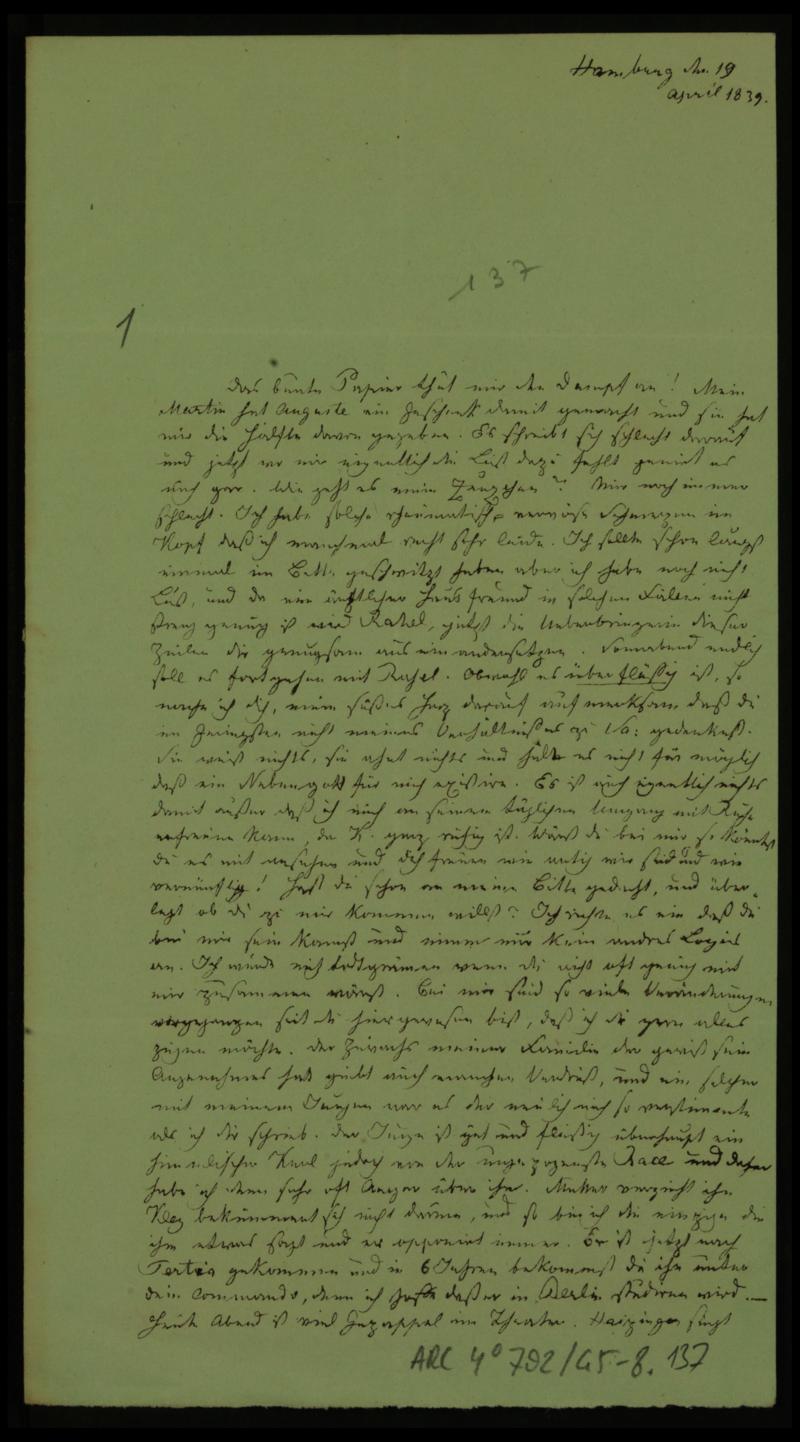 Hamburg den 19
April 1839.
137
1
Das bunte Papier thut mir den Dampf an! Mein
Martin hat Auguste ein Geschenk damit gemacht und sie hat
mir die Hälfte davon gegeben. Es schreibt sich schlecht darauf
und jetzt wo mir eigentlich die Lust dazu fehlt genirt es
mich gar. Wie geht es mein ? Mir noch immer
schlecht. Ich habe solche rheumatisch nervöse Schmerzen im
Kopf daß ich manchmal recht sehr leide. Ich sollte schon längst
einmal im Bette geschwitzt haben aber ich habe noch nicht
Lust, und da ein ärztlicher Hausfreund in solchen Fällen nicht
streng genug ist wird Rahel, jetzt die Ueberbringerin dieser
Zeilen dir genugsam auseinandersetzen. Sonnabend endlich
soll es fortgehen mit Rahel. Obwohl es überflüssig ist, so
mache ich dich, mein süßes Herz darauf aufmerksam daß du
im Geringsten nicht meines Verhältnißes zu gedenkest.
Sie weiß nichts, sie ahnt nichts und hält es nicht für möglich
daß ein Nebengott für mich existire. Es ist auch eigentlich nichts
damit außer daß ich mich an seinem täglichen Umgang mit Ruhe
erfreuen kann, da K. ganz ruhig ist. Wärst du bei mir so könntest
du es mit ansehen und dich freuen wie artig wir sind und wie
vernünftig! Hast du schon an meine Bitte gedacht, und über-
legt ob du zu mir kommen willst? Ich richte es ein daß du
bei mir sein kannst und nimm nur kein andres Logis
an. Ich würde mich todtgrämen wenn du nicht oft genug mit
mir zusammen wärest. Bei mir sind so viele Veränderungen
vorgegangen seit du hier gewesen bist, daß ich dir gern alles
zeigen möchte. Der Zuwachs meiner Familie der gewiß sein
Angenehmes hat giebt auch manchen Verdruß, und ein solcher
mit meinem Jungen war es der neulich mich so verstimmte
als ich dir schrieb. Der Junge ist gut und fleißig überhaupt ein
himmlischer Kerl jedoch von der ungezogensten Race und daher
habe ich denn sehr oft Aerger über ihn. Mutter verzieht ihn
 bekümmert sich nicht darum, und so bin ich die einzige die
ihm etwas sagt und er opponirt immer. Er ist jetzt nach
Tertia gekommen und in 6 Jahren bekommst du ihn unter
dein Commando, denn ich hoffe daß er in Berlin studiren wird. —
Heute Abend ist viel im Theater. Haizinger singt
ARC 4° 792/G5-8. 137